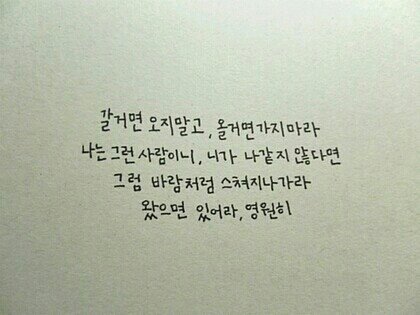 갈거면 오지말고, 올거면가지마라
나는 그런 사람이니, 니가 나같지 않다면
그럼 바람처럼 스쳐지나가라
왔으면 있어라, 영원히